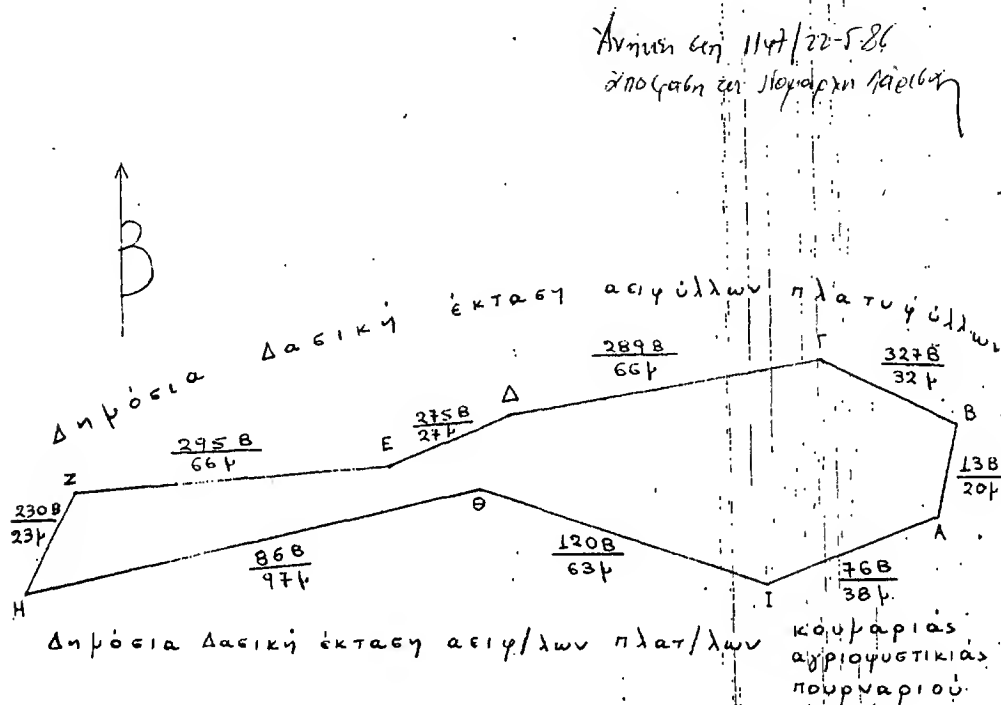 1147/22-5-86
απόφαση του Νομάρχη Λάρισας
Β
Δημόσια Δασική έκταση αειφύλλων πλατυφύλλων
289Β
66μ
Γ
327Β
32μ
Β
13Β
20μ
Α
275Β
27μ
Δ
Ε
295Β
66μ
Ζ
230Β
23μ
Η
86Β
97μ
Θ
120Β
63μ
Ι
76Β
38μ
Δημόσια Δασική έκταση αειφ/λων πλατ/λων κουμαριάς
αγριοφυστικιάς
πουρναριού